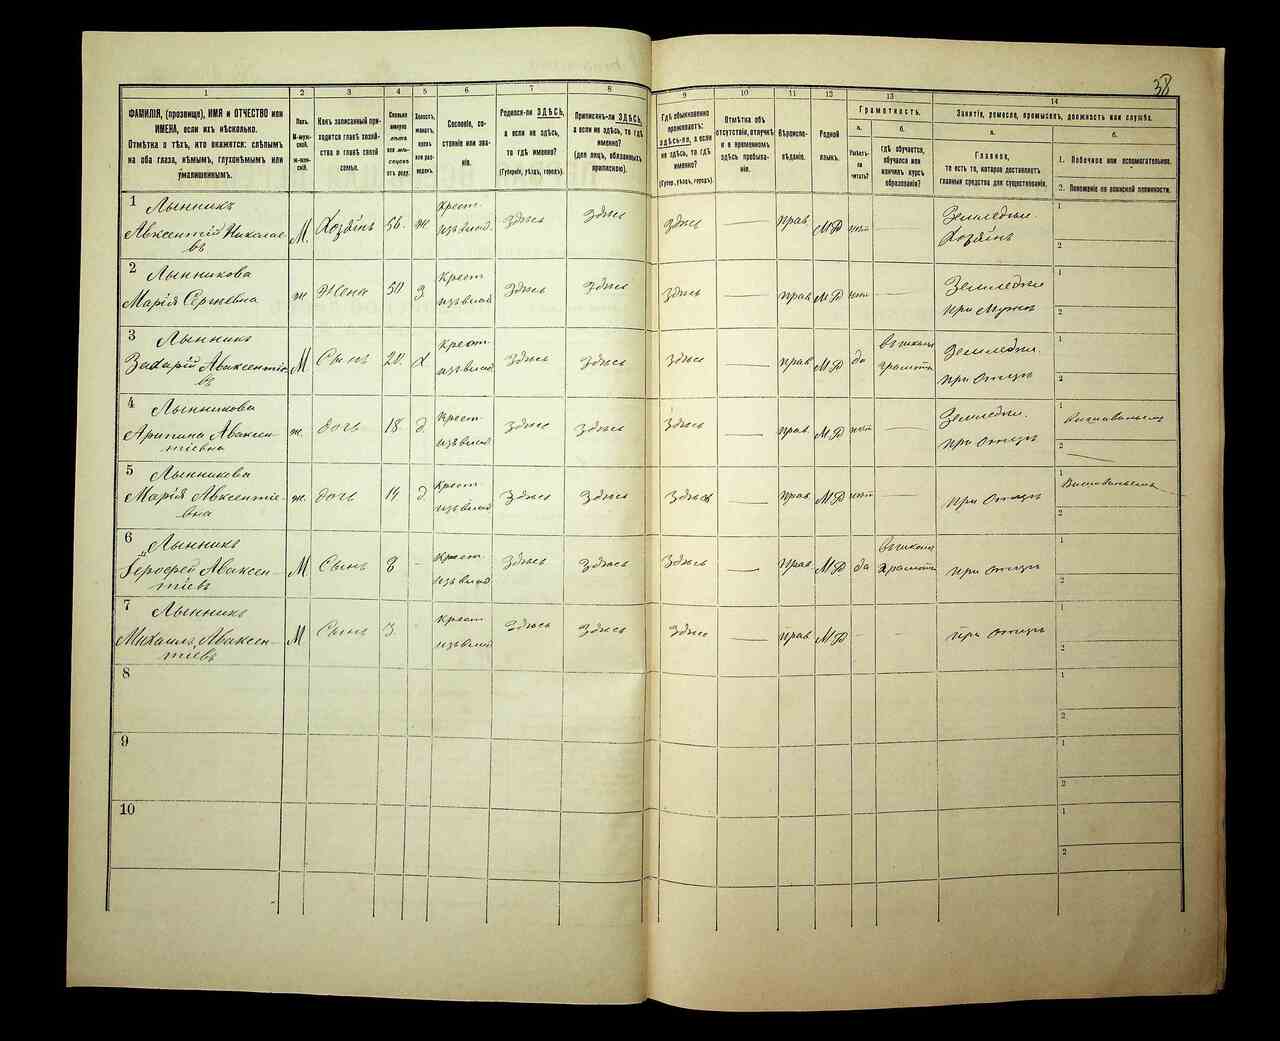 38
1 2 3 4 5 6 7 8 9 10 11 12 13 14
ФАМИЛІЯ, (прозвище), ИМЯ и ОТЧЕСТВО или
ИМЕНА, если ихъ нѣсколько.
Отмѣтка о тѣхъ, кто окажется: слѣпымъ
на оба глаза, нѣмымъ, глухонѣмымъ или
умалишеннымъ.
Полъ.
М-муж-
ской.
ж-жен-
скій.
Какъ записанный при-
ходится главѣ хозяй-
ства и главѣ своей
семьи.
Сколько
минуло
лѣтъ
или мѣ-
сяцевъ
отъ роду.
Холостъ,
женатъ,
вдовъ
или раз-
веденъ.
Сословіе, со-
стояніе или зва-
ніе.
Родился-ли ЗДѢСЬ,
а если не здѣсь,
то гдѣ именно?
(Губернія, уѣздъ, городъ).
Приписанъ-ли ЗДѢСЬ,
а если не здѣсь, то гдѣ
именно?
(для лицъ, обязанныхъ
припискою).
Гдѣ обыкновенно
проживаетъ:
ЗДѢСЬ-ли, а если
не здѣсь, то гдѣ
именно?
(Губер., уѣздъ, городъ).
Отмѣтка объ
отсутствіи, отлучкѣ
и о временномъ
здѣсь пребыва-
ніи.
Вѣроиспо-
вѣданіе.
Родной
языкъ.
Грамотность.
а. б.
Умѣетъ-
ли
читать?
Гдѣ обучается,
обучался или
кончилъ курсъ
образованія?
Занятіе, ремесло, промыселъ, должность или служба.
а. б.
Главное,
то есть то, которое доставляетъ
главныя средства для существованія.
1. Побочное или вспомогательное.
2. Положеніе по воинской повинности.
1 Лынникъ
Авксентій Николае-
въ М. Хозяинъ 56. ж Крест. здѣсь здѣсь здѣсь — прав МР нѣт — Земледѣл. Хозяинъ
2 Лынникова
Марія Сергѣевна ж Жена 50 з Крест здѣсь здѣсь здѣсь — прав МР нѣт — Земледѣл при Мужѣ
3 Лынникъ
Захарій Авксентіе-
въ М Сынъ 20. Х Крест. здѣсь здѣсь здѣсь — прав МР да въ школѣ грамотѣ Земледѣл. при Отцѣ
4 Лынникова
Арипина Авксен-
тіевна ж. дочь 18 д. Крест здѣсь здѣсь здѣсь — прав МР нѣт — Земледѣл. при Отцѣ
5 Лынникова
Марія Авксентіе-
вна ж. дочь 14 д. Крест здѣсь здѣсь здѣсь — прав МР нѣт — при Отцѣ
6 Лынникъ
Авксен-
тіевъ М Сынъ 8 - Крест. здѣсь здѣсь здѣсь — прав МР да въ школѣ грамотѣ при Отцѣ
7 Лынникъ
Михаилъ Авксен-
тіевъ М Сынъ 3. - Крест. здѣсь здѣсь здѣсь — прав МР - - при Отцѣ
8
9
10